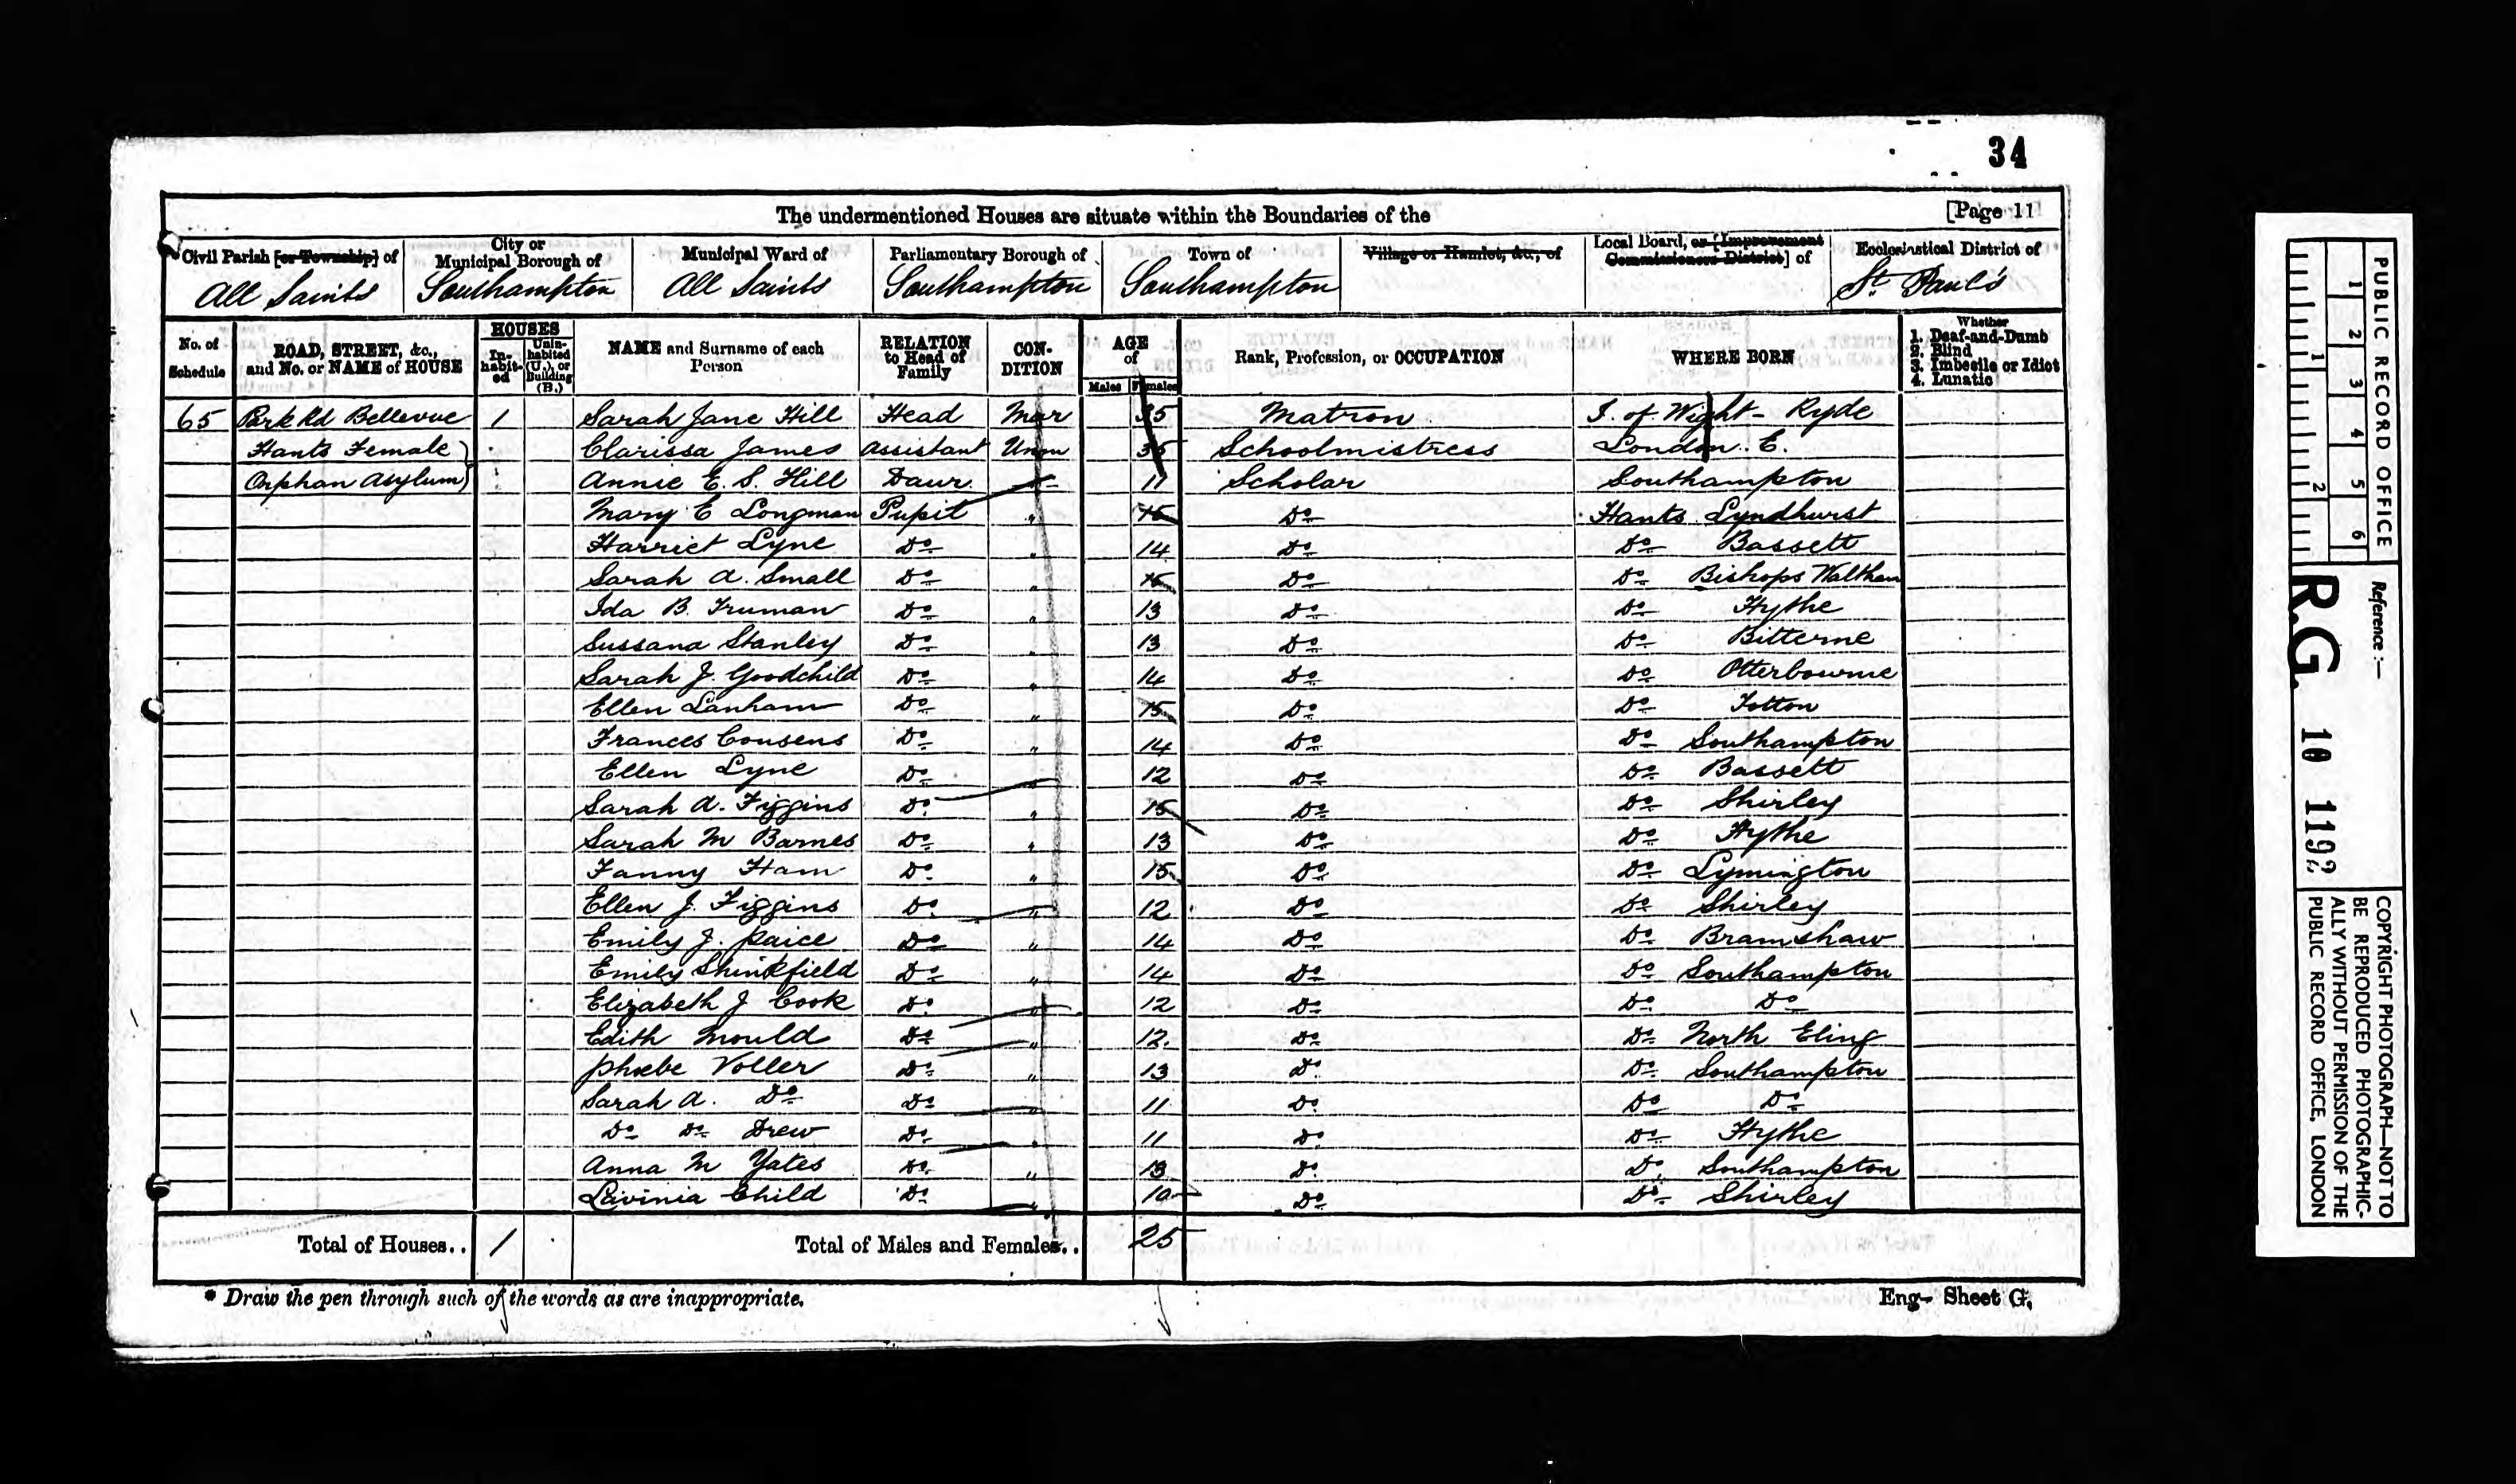 34
The undermentioned Houses are situate within the Boundaries of the [Page 11
Civil Parish [or Township] of City or Municipal Borough of Municipal Ward of Parliamentary Borough of Town of Village or Hamlet, &c., of Local Board, or [Improvement Commissioners District] of Ecclesiastical District of
All Saints Southampton All Saints Southampton Southampton St. Paul's
No. of Schedule ROAD, STREET, &c., and No. or NAME of HOUSE HOUSES In-habit-ed Unin-habited (U.), or Building (B.) NAME and Surname of each Person RELATION to Head of Family CON-DITION AGE of Males Females Rank, Profession, or OCCUPATION WHERE BORN Whether 1. Deaf-and-Dumb 2. Blind 3. Imbecile or Idiot 4. Lunatic
65 Park Rd Bellevue 1 Sarah Jane Hill Head Mar 35 Matron I. of Wight - Ryde
Hants Female Clarissa James Assistant Unm 35 Schoolmistress London. E.
Orphan Asylum Annie E. S. Hill Daur. 11 Scholar Southampton
Mary E Longman Pupil " Do Hants Lyndhurst
Harriet Lyne Do " 14 Do Do Bassett
Sarah A. Small Do " Do Do Bishops Waltham
Ida B. Truman Do " 13 Do Do Hythe
Sussana Stanley Do " 13 Do Do Bitterne
Sarah J. Goodchild Do " 14 Do Do Otterbourne
Ellen Lanham Do " 15 Do Do Totton
Frances Cousens Do " 14 Do Do Southampton
Ellen Lyne Do " 12 Do Do Bassett
Sarah A. Figgins Do " 15 Do Do Shirley
Sarah M Barnes Do " 13 Do Do Hythe
Fanny Ham Do " 15 Do Do Lymington
Ellen J. Figgins Do " 12 Do Do Shirley
Emily J. Paice Do " 14 Do Do Bramshaw
Emily Shinkfield Do " 14 Do Do Southampton
Elizabeth J Cook Do " 12 Do Do Do
Edith Mould Do " 12. Do Do North Eling
Phœbe Voller Do " 13 Do Do Southampton
Sarah A. Do Do " 11 Do Do Do
Do Do Drew Do " 11 Do Do Hythe
Anna M Yates Do " 13 Do Do Southampton
Lavinia Child Do " 10 Do Do Shirley
Total of Houses.. 1 Total of Males and Females.. 25
* Draw the pen through such of the words as are inappropriate.
Eng- Sheet G.
PUBLIC RECORD OFFICE
1 2 3 4 5 6
1 2
Reference :-
R.G. 10 1192
COPYRIGHT PHOTOGRAPH—NOT TO
BE REPRODUCED PHOTOGRAPHIC-
ALLY WITHOUT PERMISSION OF THE
PUBLIC RECORD OFFICE, LONDON